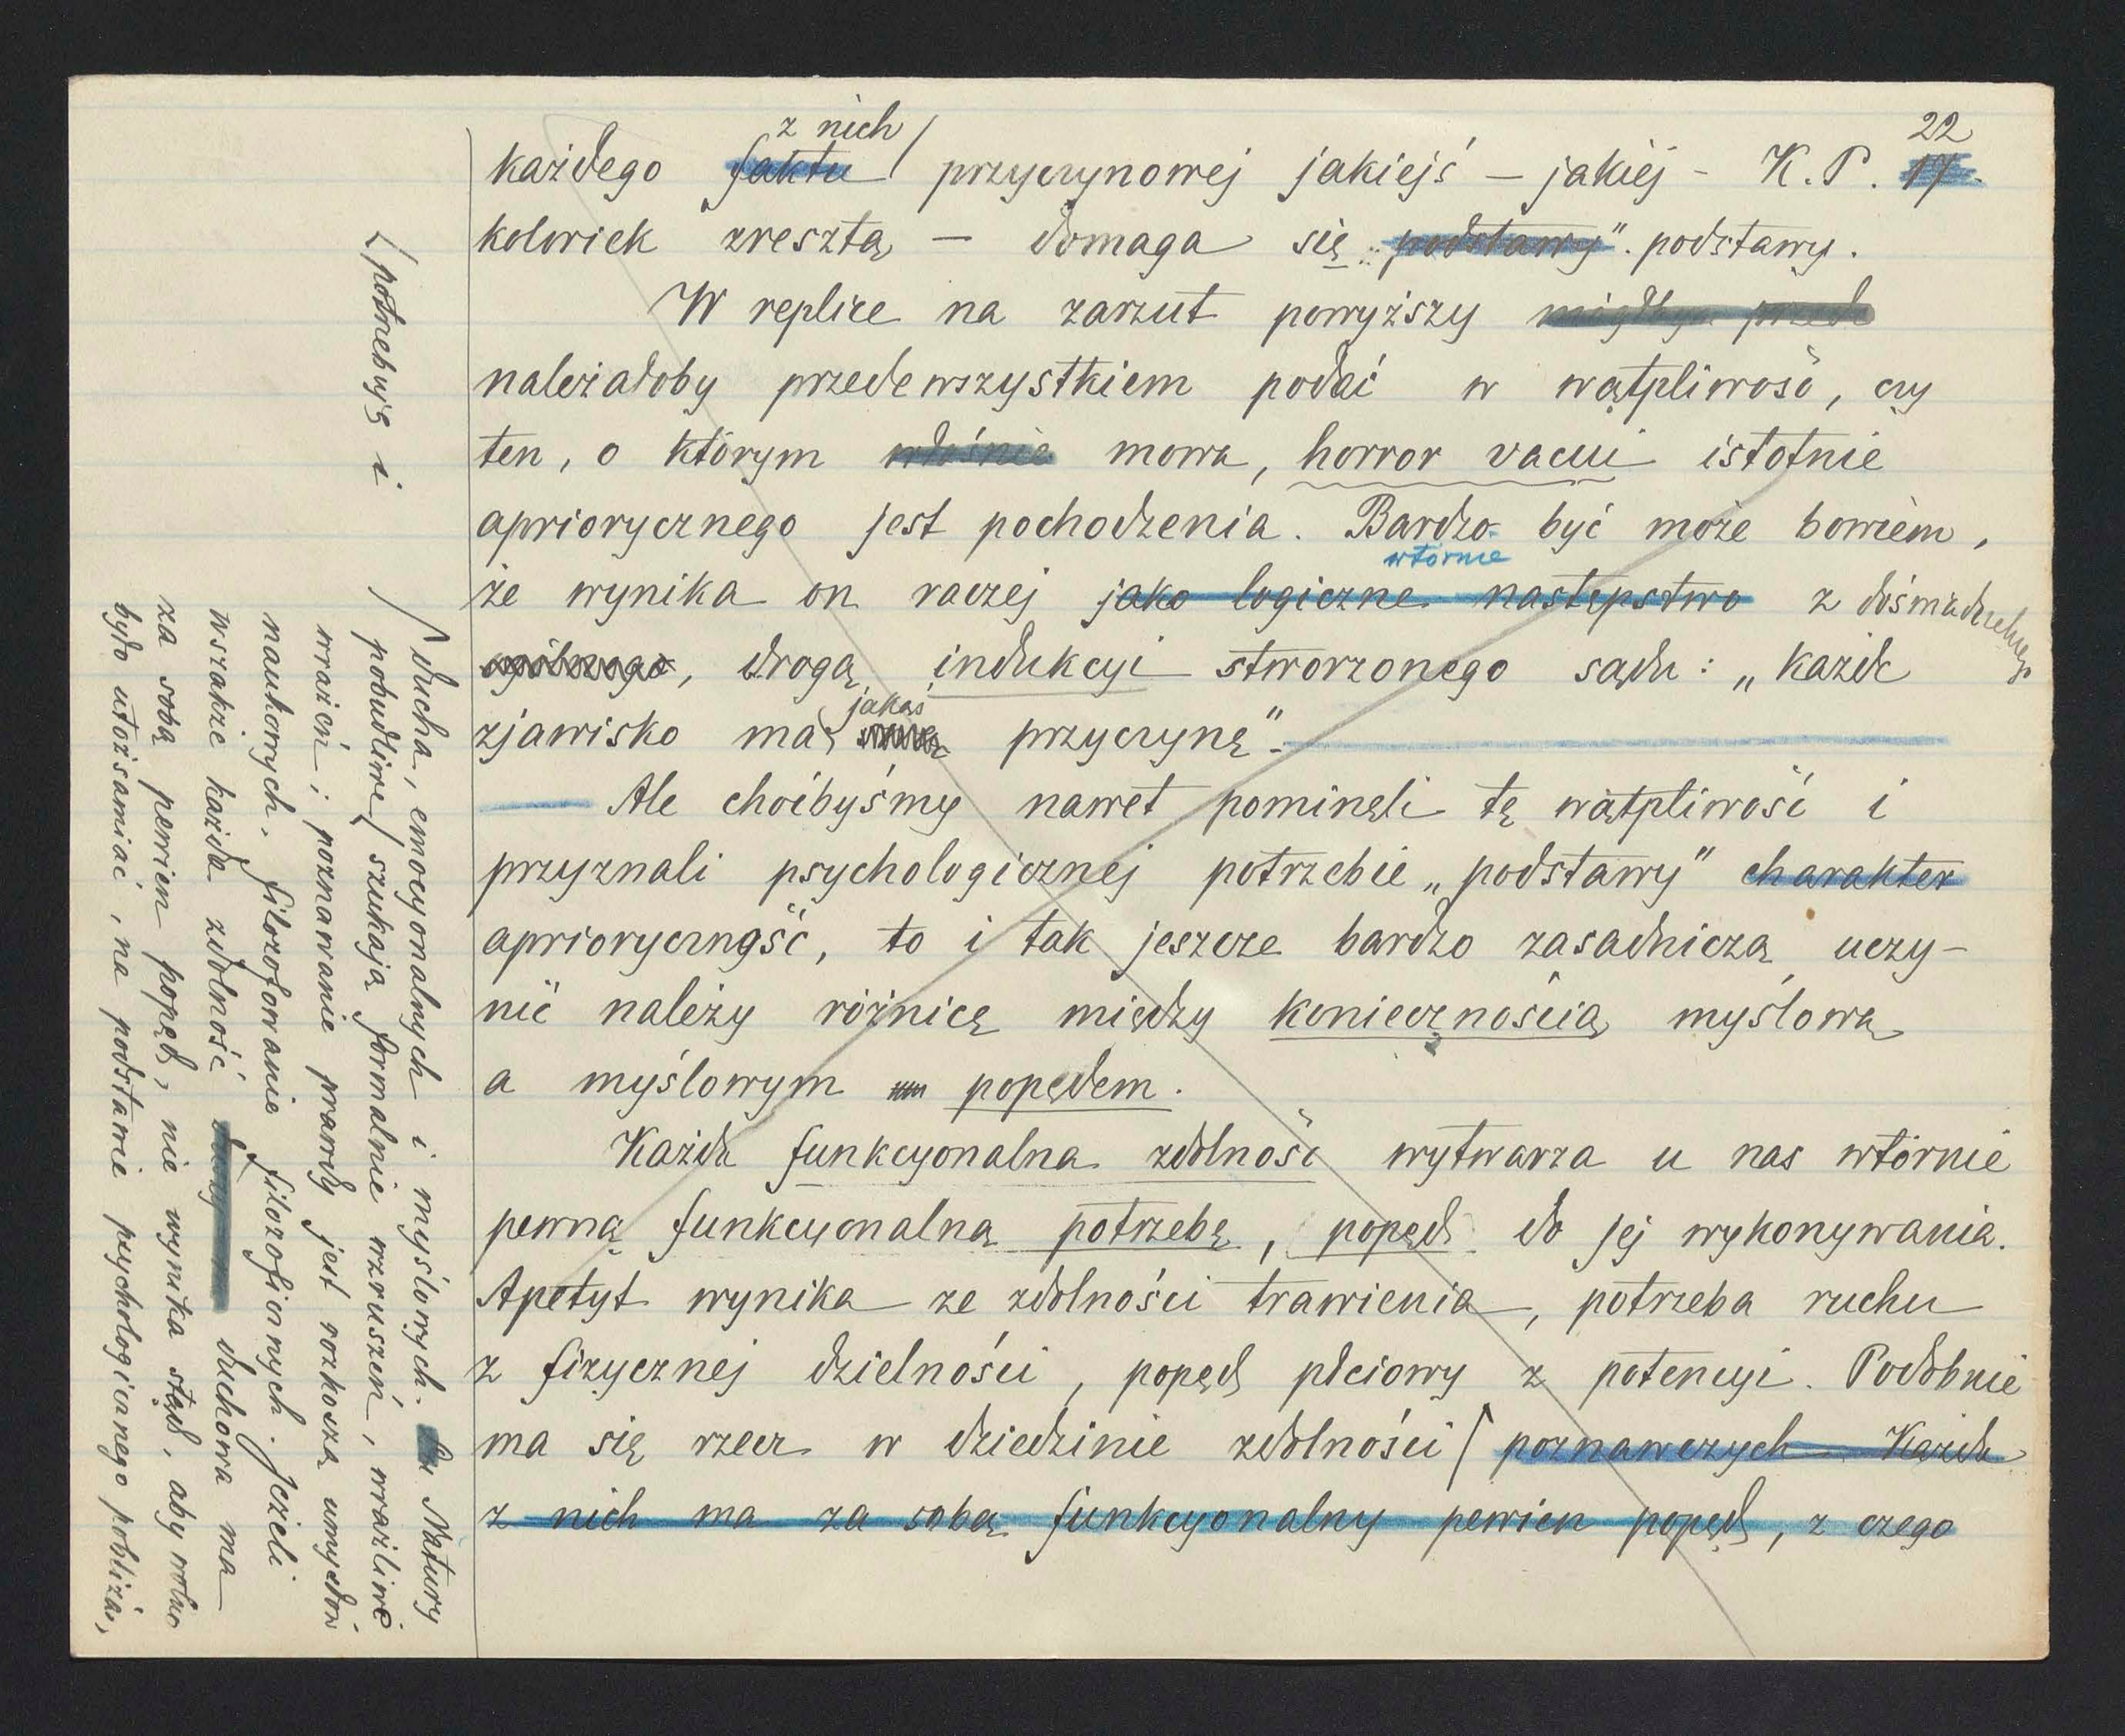 z nich 22
każdego faktu / przyczynowej jakiejś – jakiej – K. P. 17.
kolwiek zresztą – domaga się „podstawy". podstawy.
W replice na zarzut powyższy przede
należałoby przedewszystkiem podać w wątpliwość, czy
ten, o którym właśnie mowa, horror vacui istotnie
apriorycznego jest pochodzenia. Bardzo być może bowiem,
wtórnie
że wynika on raczej jako logiczne następstwo z doświadczalnego
ogólnego, drogą indukcyi stworzonego sądu: „każde
jakąś
zjawisko ma przyczynę".
Ale choćbyśmy nawet pominęli tę wątpliwość i
przyznali psychologicznej potrzebie „podstawy" charakter
aprioryczność, to i tak jeszcze bardzo zasadniczą uczy-
nić należy różnicę między koniecznością myślową
a myślowym popędem.
Każda funkcyonalna zdolność wytwarza u nas wtórnie
pewną funkcyonalną potrzebę, popęd do jej wykonywania.
Apetyt wynika ze zdolności trawienia, potrzeba ruchu
z fizycznej dzielności, popęd płciowy z potencyi. Podobnie
ma się rzecz w dziedzinie zdolności / poznawczych Każda
z nich ma za sobą funkcyonalny pewien popęd, z czego
/ potrzebują i
/ ducha, emocyonalnych i myślowych. Natury
pobudliwe / szukają formalnie wzruszeń, wrażliwe
wrażeń; poznawanie prawdy jest rozkoszą umysłów
naukowych, filozofowanie filozoficznych. Jeżeli
wszakże każda zdolność duchowa ma
za sobą pewien popęd, nie wynika stąd, aby wolno
było utożsamiać, na podstawie psychologicznego pobliża,